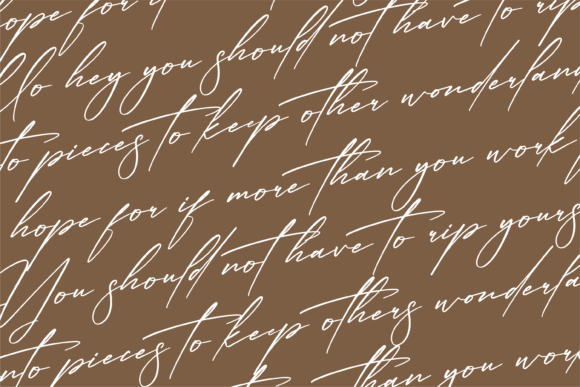 hope for it
llo hey you should not have to rip
to pieces to keep other wonderland
hope for if more than you work
You should not have to rip yours
nto pieces to keep others wonderla
than you work